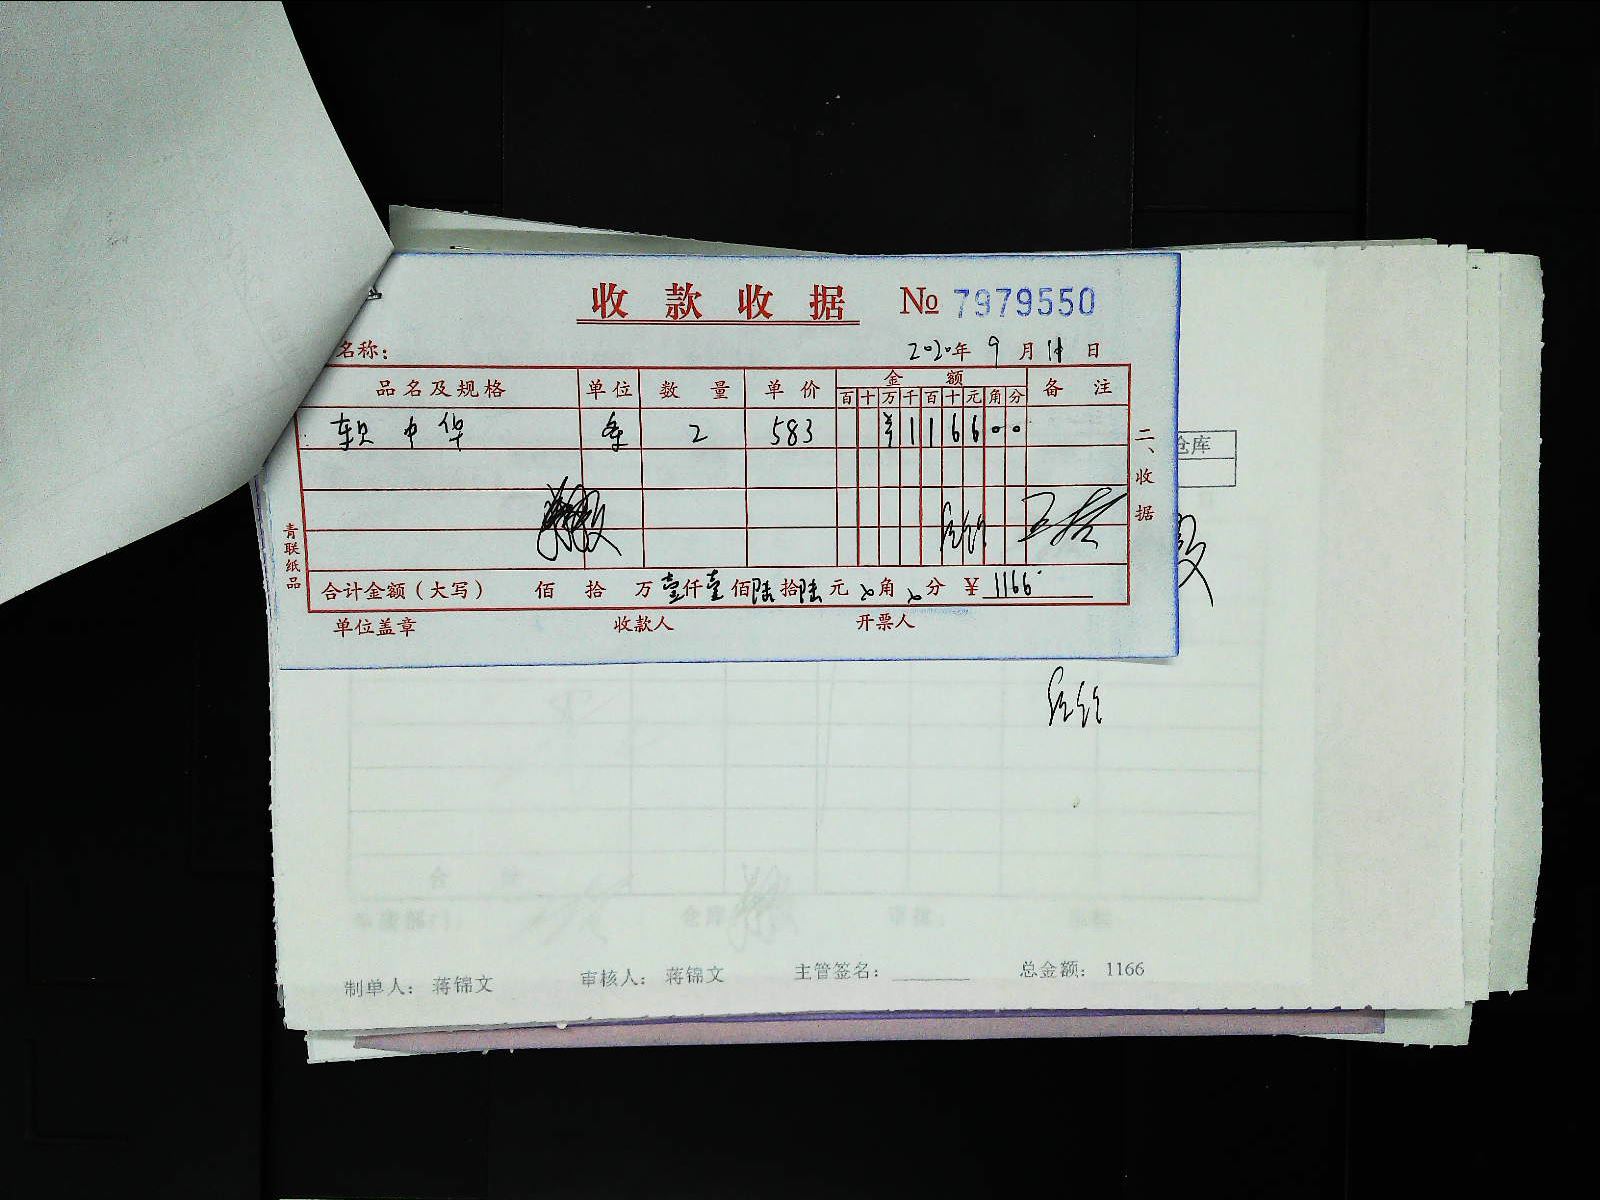 收款收据 № 7979550
名称：
2020年 9月 11日
品名及规格 单位 数量 单价 金额 备注
百 十 万 千 百 十 元 角 分
软中华 条 2 583 ¥ 1 1 6 6 0 0
二、收据
仓库
青联纸品
合计金额（大写） 佰 拾 万 壹仟 壹佰 陆拾 陆元 角 分 ¥ 1166
单位盖章 收款人 开票人
制单人： 蒋锦文 审核人： 蒋锦文 主管签名： 总金额： 1166